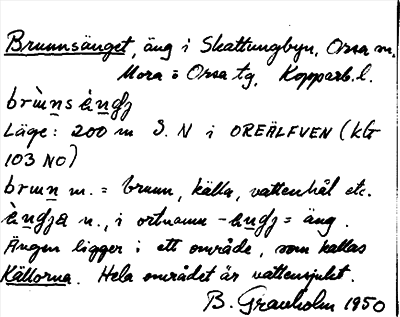 Brunnsänget, äng i Skattungbyn, Orsa sn.
Mora o Orsa tg, Kopparb. l.
brùns ὲngj
Läge: 200 m S. N i OREÄLFVEN (KG
103 NO)
brun m. = brunn, källa, vattenhål etc.
ὲngja n., i ortnamn -ὲngj = äng.
Ängen ligger i ett område, som kallas
Källorna. Hela området är vattensjukt.
B. Granholm 1950